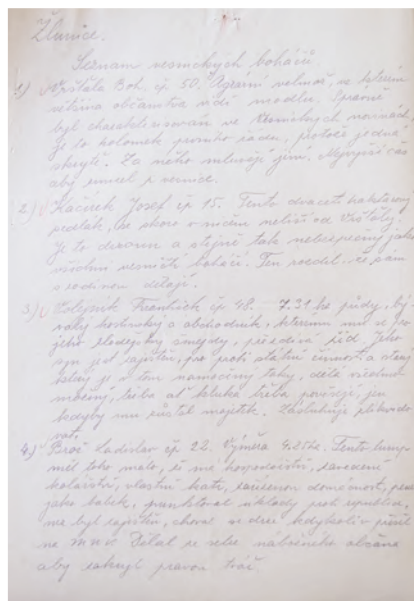 Žlunice.
Seznam vesnických boháčů.
1) Vrštala Boh. čp. 50. Agrární velmož, ve kterém
většina občanstva vidí modlu. Správně
byl charakterisován ve Novinách,
Je to holomek prvního řádu, protože jedná
skrytě. Za něho mluvějí jiní. Nejvyšší čas
aby zmizel z vesnice.
2) Kačírek Josef čp 15. Tento dvaceti hektarový
sedlák, se skoro v ničem neliší od Vrštaly.
Je to a stejně tak nebezpečný jako
všichni vesničtí boháči. Ten rozdíl že sám
s rodinou dělají.
3) František čp. 48. 7.31 ha půdy, bý-
valý hostinský a obchodník, kterému
jeho smejdy, přezdívá žid. Jeho
syn jest zajištěn, pro proti státní činnost a otec
který je v tom namočený taky, dělá všechno
možné, třeba ať kluka třeba pověsejí, jen
kdyby mu zůstal majetek. Zasluhuje zlikvido
vat.
4) Ladislav čp. 22. Výměra ha. Tento
měl toho málo, si mé hospodářství, zavedené
kolářství, vlastní domácnost,
jako bábek, úklady proti republice,
byl zajištěn, choval se drze kdykoliv přišel
na MNV. Dělal ze sebe nábožného občana
aby zakryl pravou tvář.